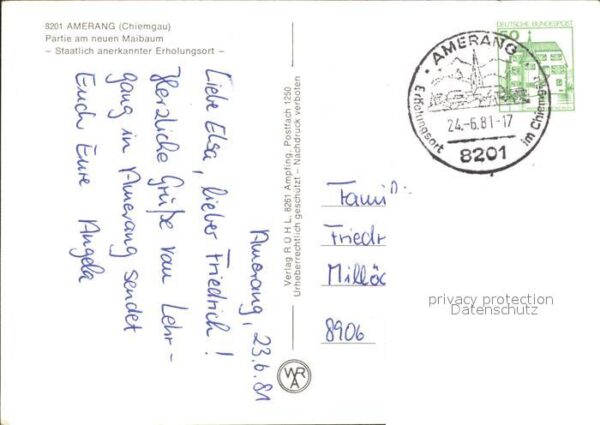 8201 AMERANG (Chiemgau)
Partie am neuen Maibaum
– Staatlich anerkannter Erholungsort –
Amerang, 23.6.81
Liebe Elsa, lieber Friedrich!
Herzliche Grüße vom Lehr-
gang in Amerang sendet
Euch Eure Angela
Verlag R Ü H L, 8261 Ampfing, Postfach 1250
Urheberrechtlich geschützt – Nachdruck verboten
WRA
DEUTSCHE BUNDESPOST
50
AMERANG
Erholungsort im Chiemgau
24.-6.81-17
8201
Fami
Friedr
Millöc
8906
privacy protection
Datenschutz